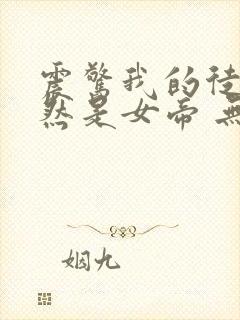 震驚我的徒
然是女帝 無
姻九